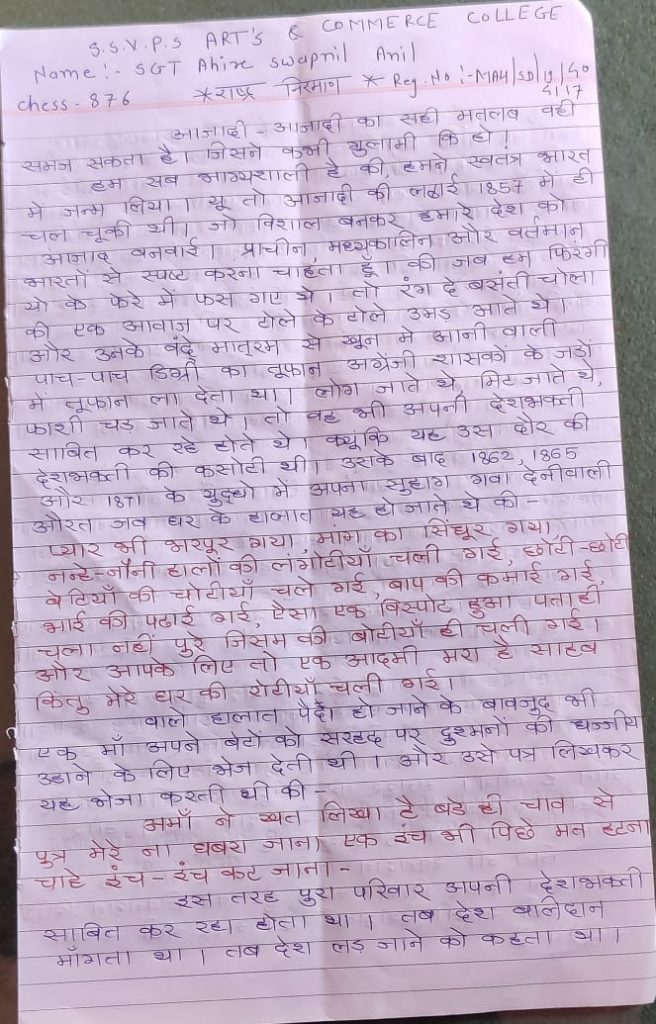 S.S.V.P.S ART'S & COMMERCE COLLEGE
Name:- SGT Ahire Swapnil Anil
chess - 876 *राष्ट्र निरमाण * Reg. No:- MAH/SD/19/40
4117
आजादी - आजादी का सही मतलब वही
समज सकता है। जिसने कभी गुलामी कि हो!
हम सब भाग्यशाली है की, हमने स्वतत्र भारत
में जन्म लिया। यू तो आजादी की लढाई 1857 में ही
चल चूकी थी। जो विशाल बनकर हमारे देश को
आजाद बनवाई। प्राचीन, मध्यकालिन और वर्तमान
भारतों से स्पष्ट करना चाहता हूँ। की जब हम फिरंगी
यो के फेरे में फस गए थे। तो रंग दे बसंती चोला
की एक आवाज पर टोले के टोले उमड आते थे।
और उनके वंदे मातरम से खून मे आनी वाली
पाच-पाच डिग्री का तूफान अग्रेंजी शासकों के जड़ों
में तूफान ला देता था। लोग जाते थे, मिट जाते थे,
फाशी चड़ जाते थे। तो वह भी अपनी देशभक्ती
साबित कर रहे होते थे। क्यूंकि यह उस दौर की
देशभक्ती की कसोटी थी। उसके बाद 1862, 1865
और 1871 के युद्धो में अपना सुहाग गवा देनीवाली
औरत जब घर के हालात यह हो जाते थे की -
प्यार भी भरपूर गया, मांग का सिंधूर गया
नन्हे-नौनी हालों की लंगोटीयाँ चली गई, छोटी-छोटी
बेटियाँ की चोटीयाँ चले गई, बाप की कमाई गई,
भाई की पढाई गई, ऐसा एक विस्पोट हुआ पताही
चला नहीं पुरे जिसम की बोटीयाँ ही चली गई।
और आपके लिए तो एक आदमी मरा है साहब
किंतु मेरे घर की रोटीयाँ चली गई।
वाले हालात पैदा हो जाने के बावजुद भी
एक माँ अपने बेटों को सरहद पर दुश्मनों की धज्जीय
उडाने के लिए भेज देती थी। और उसे पत्र लिखकर
यह भेजा करती थी की -
अमाँ ने खत लिखा है बडे ही चाव से
पुत्र मेरे ना घबरा जाना, एक इंच भी पिछे मत हटना
चाहे इंच - इंच कट जाना -
इस तरह पुरा परिवार अपनी देशभक्ती
साबित कर रहा होता था। तब देश बालिदान
माँगता था। तब देश लड़ जाने को कहता था।